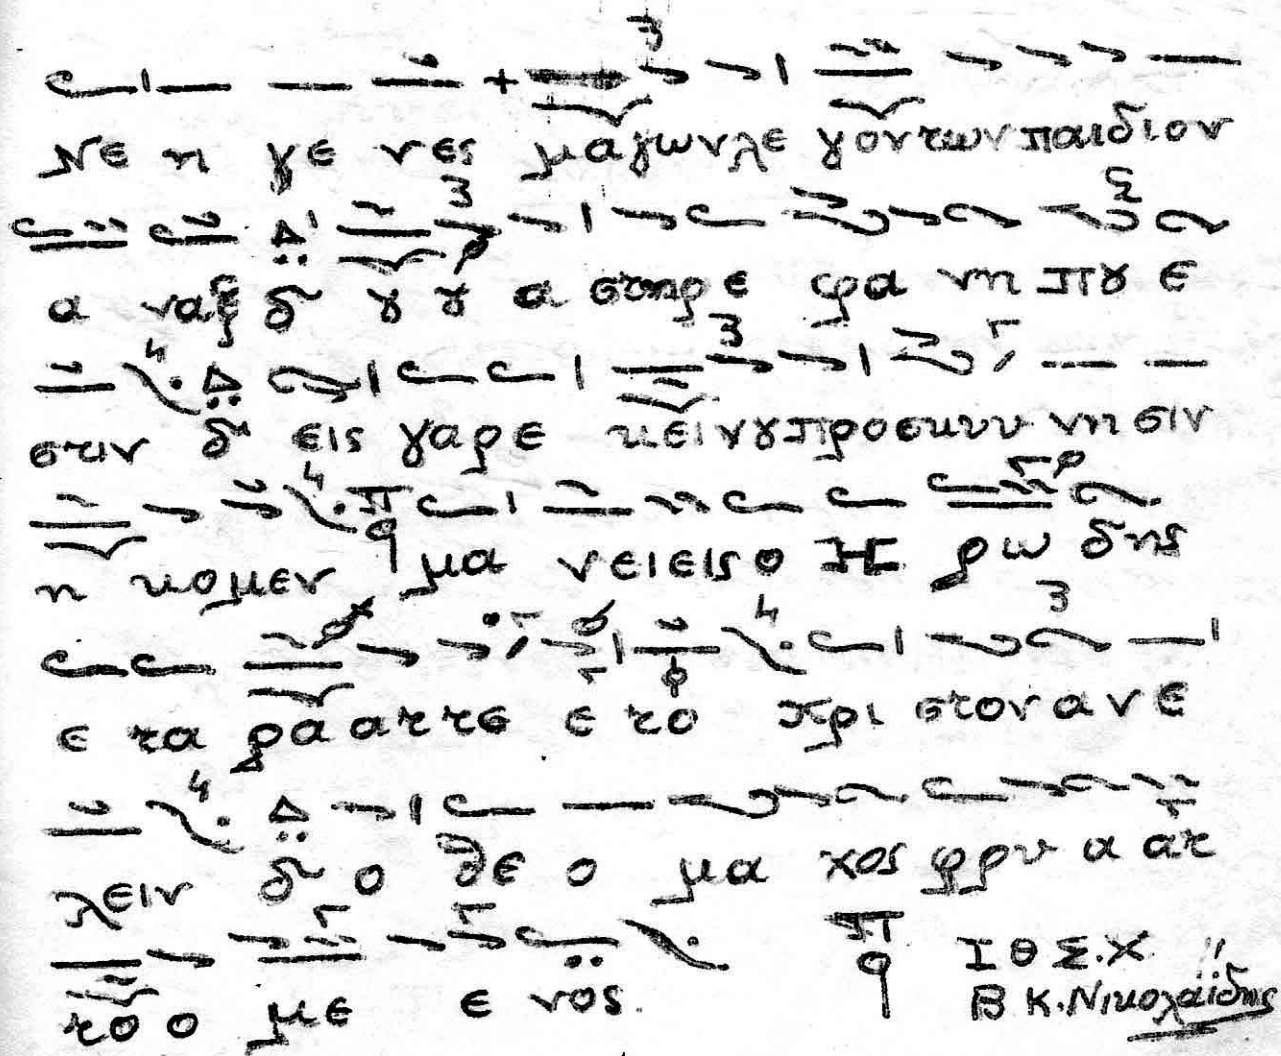 Νε η γε νες μαγων λε γόντων παιδίον
α ναξ δ ου ου α στηρ ε φα νη που ε
στιν δι εις γαρ ε κείνου προσκυυ νησιν
η κομεν μα νειεις ο Η ρω δης
ε τα ραα αττε ε το Χρι στον αν ε
λειν δι ο θε ο μα χος φρυ α ατ
το ο με ε νος.
Ι Θ Σ. Χ. !!
Β Κ. Νικολαΐδης